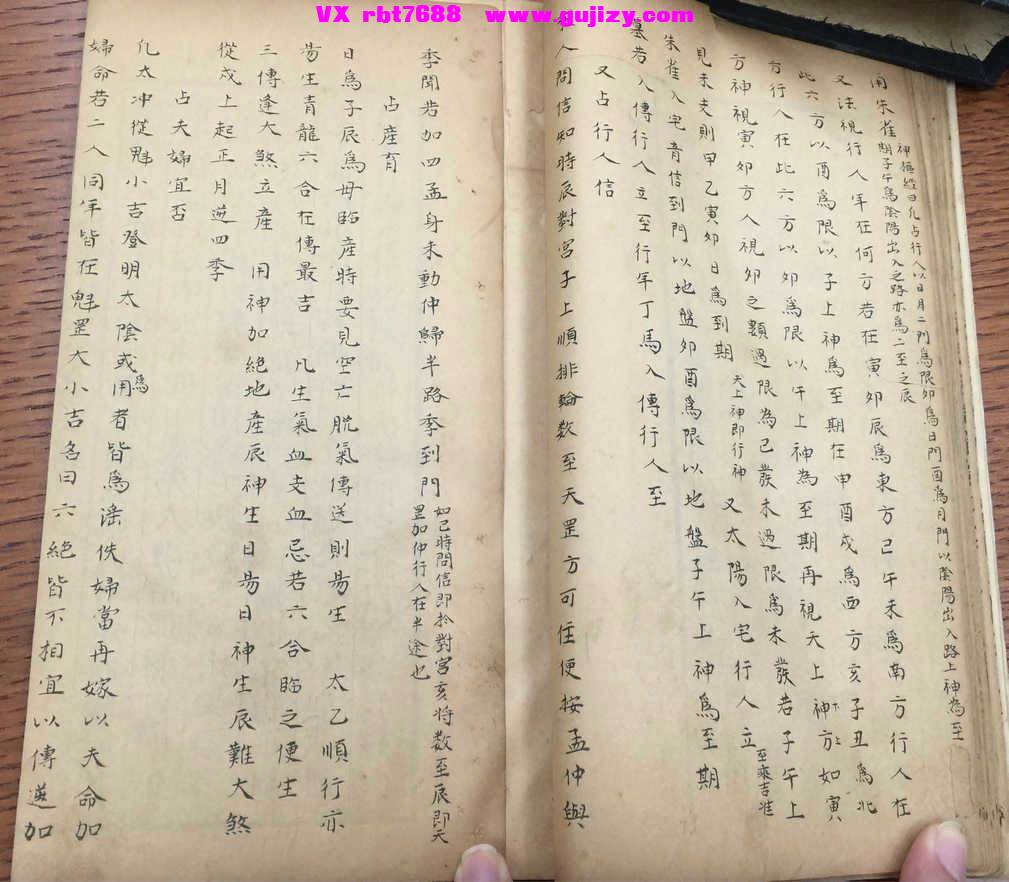 VX rbt7688 www.gujizy.com
神樞經曰凡占行人以日月二門為限卯為日門酉為月門以陰陽出入路上神為至
期子午為陰陽出入之路亦為二至之辰
用朱雀
又法視行人年在何方若在寅卯辰爲東方巳午未爲南方行人在
此六方以酉爲限以子上神爲至期在申酉戌爲西方亥子丑爲北
方行人在此六方以卯爲限以午上神為至期再視天上神方如寅
方神視寅卯方人視卯之類過限為已發未過限爲未發若子午上
見未支則甲乙寅卯日爲到期
天上神即行神
又太陽入宅行人立
至乘吉準
朱雀入宅音信到門以地盤卯酉爲限以地盤子午上神爲至期
墓若入傳行人立至行年丁馬入傳行人至
又占行人信
人問信知時辰對宮子上順排輪数至天罡方可住便按孟仲與
季聞若加四孟身未動仲歸半路季到門
如巳時問信即於對宮亥將数至辰即天
罡加仲行人在半途也
占產育
日爲子辰爲母臨產時要見空亡脱氣傳送則昜生 太乙順行亦
昜生青龍六合在傳最吉 凡生氣血支血忌若六合臨之便生
三傳逢大煞立產 用神加絶地產辰神生日昜日神生辰難大煞
從戌上起正月逆四季
占夫婦宜否
凡太冲從魁小吉登明太陰或用爲者皆爲滛佚婦當再嫁以夫命加
婦命若二人同年皆在魁罡大小吉名曰六絶皆不相宜以傳送加